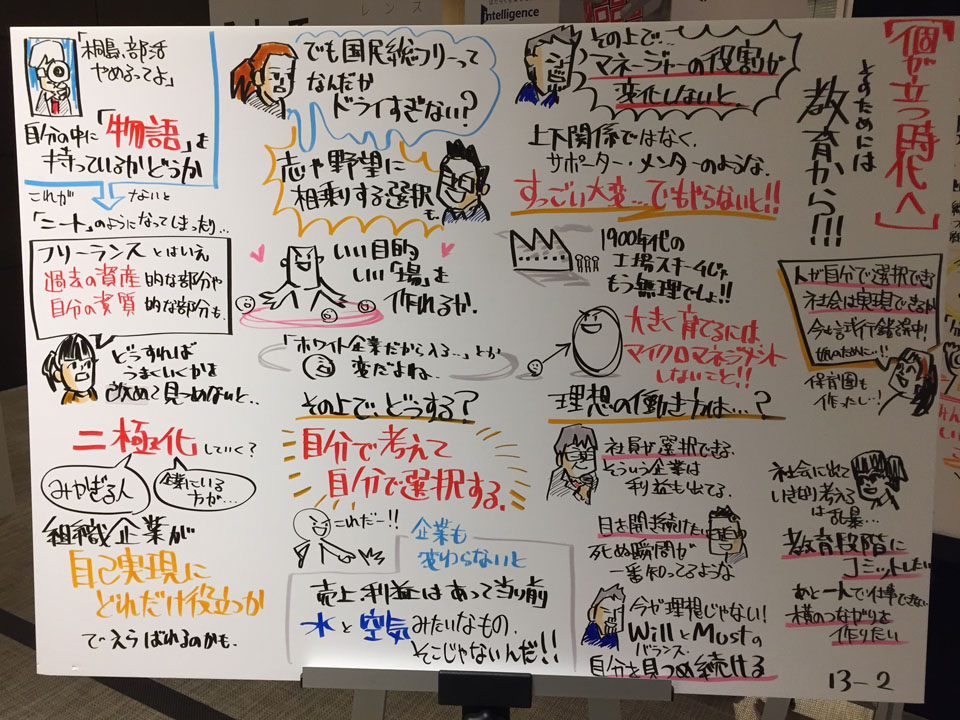 レンス
Intelligence
「桐島、部活
やめるってよ」
自分の中に「物語」を
持っているかどうか
これが
ないと
「ニート」のようになってしまったり…
フリーランスとはいえ
過去の資産的な部分や
自分の資質的な部分も、
どうすれば
うまくいくかを
改めて見つめないと..
二極化していく?
みやぎる人
企業にいる
方が…
組織、企業が
自己実現に
どれだけ役立つか
でえらばれるのかも.
でも国民総フリーって
なんだか
ドライすぎない?
志や野望に
相乗りする選択
も、
いい目的
いい「場」を
作れるか.
「ホワイト企業だから入る…」とか
変だよね..
その上で、どうする?
自分で考えて
自分で選択する.
これだー!!
企業も
変わらないと
売上、利益はあって当り前
水と空気みたいなもの.
そこじゃないんだ!!
その上で…
マネージャーの役割が
変化しないと.
上下関係ではなく、
サポーター・メンターのような.
すっごい大変…でもやらないと!!
1900年代の
工場スキームじゃ
もう無理でしょ!!
大きく育てるには、
マイクロマネジメント
しないこと!!
理想の働き方は…?
社員が選択できる.
そういう企業は
利益も出てる.
目を開き続けたい
死ぬ瞬間が
一番知ってるような
今が理想じゃない!
WillとMustの
バランス.
自分を見つめ続ける
【個が立つ時代へ】
そのためには
教育から!!!
人が自分で選択できる
社会は実現できるか
今も試行錯誤中!
娘のために..!!
保育園も
作りたい..!
社会に出て
いきなり考える
は乱暴…
教育段階に
コミットしたい
あと一人で仕事できない
横のつながりを
作りたい
13-2